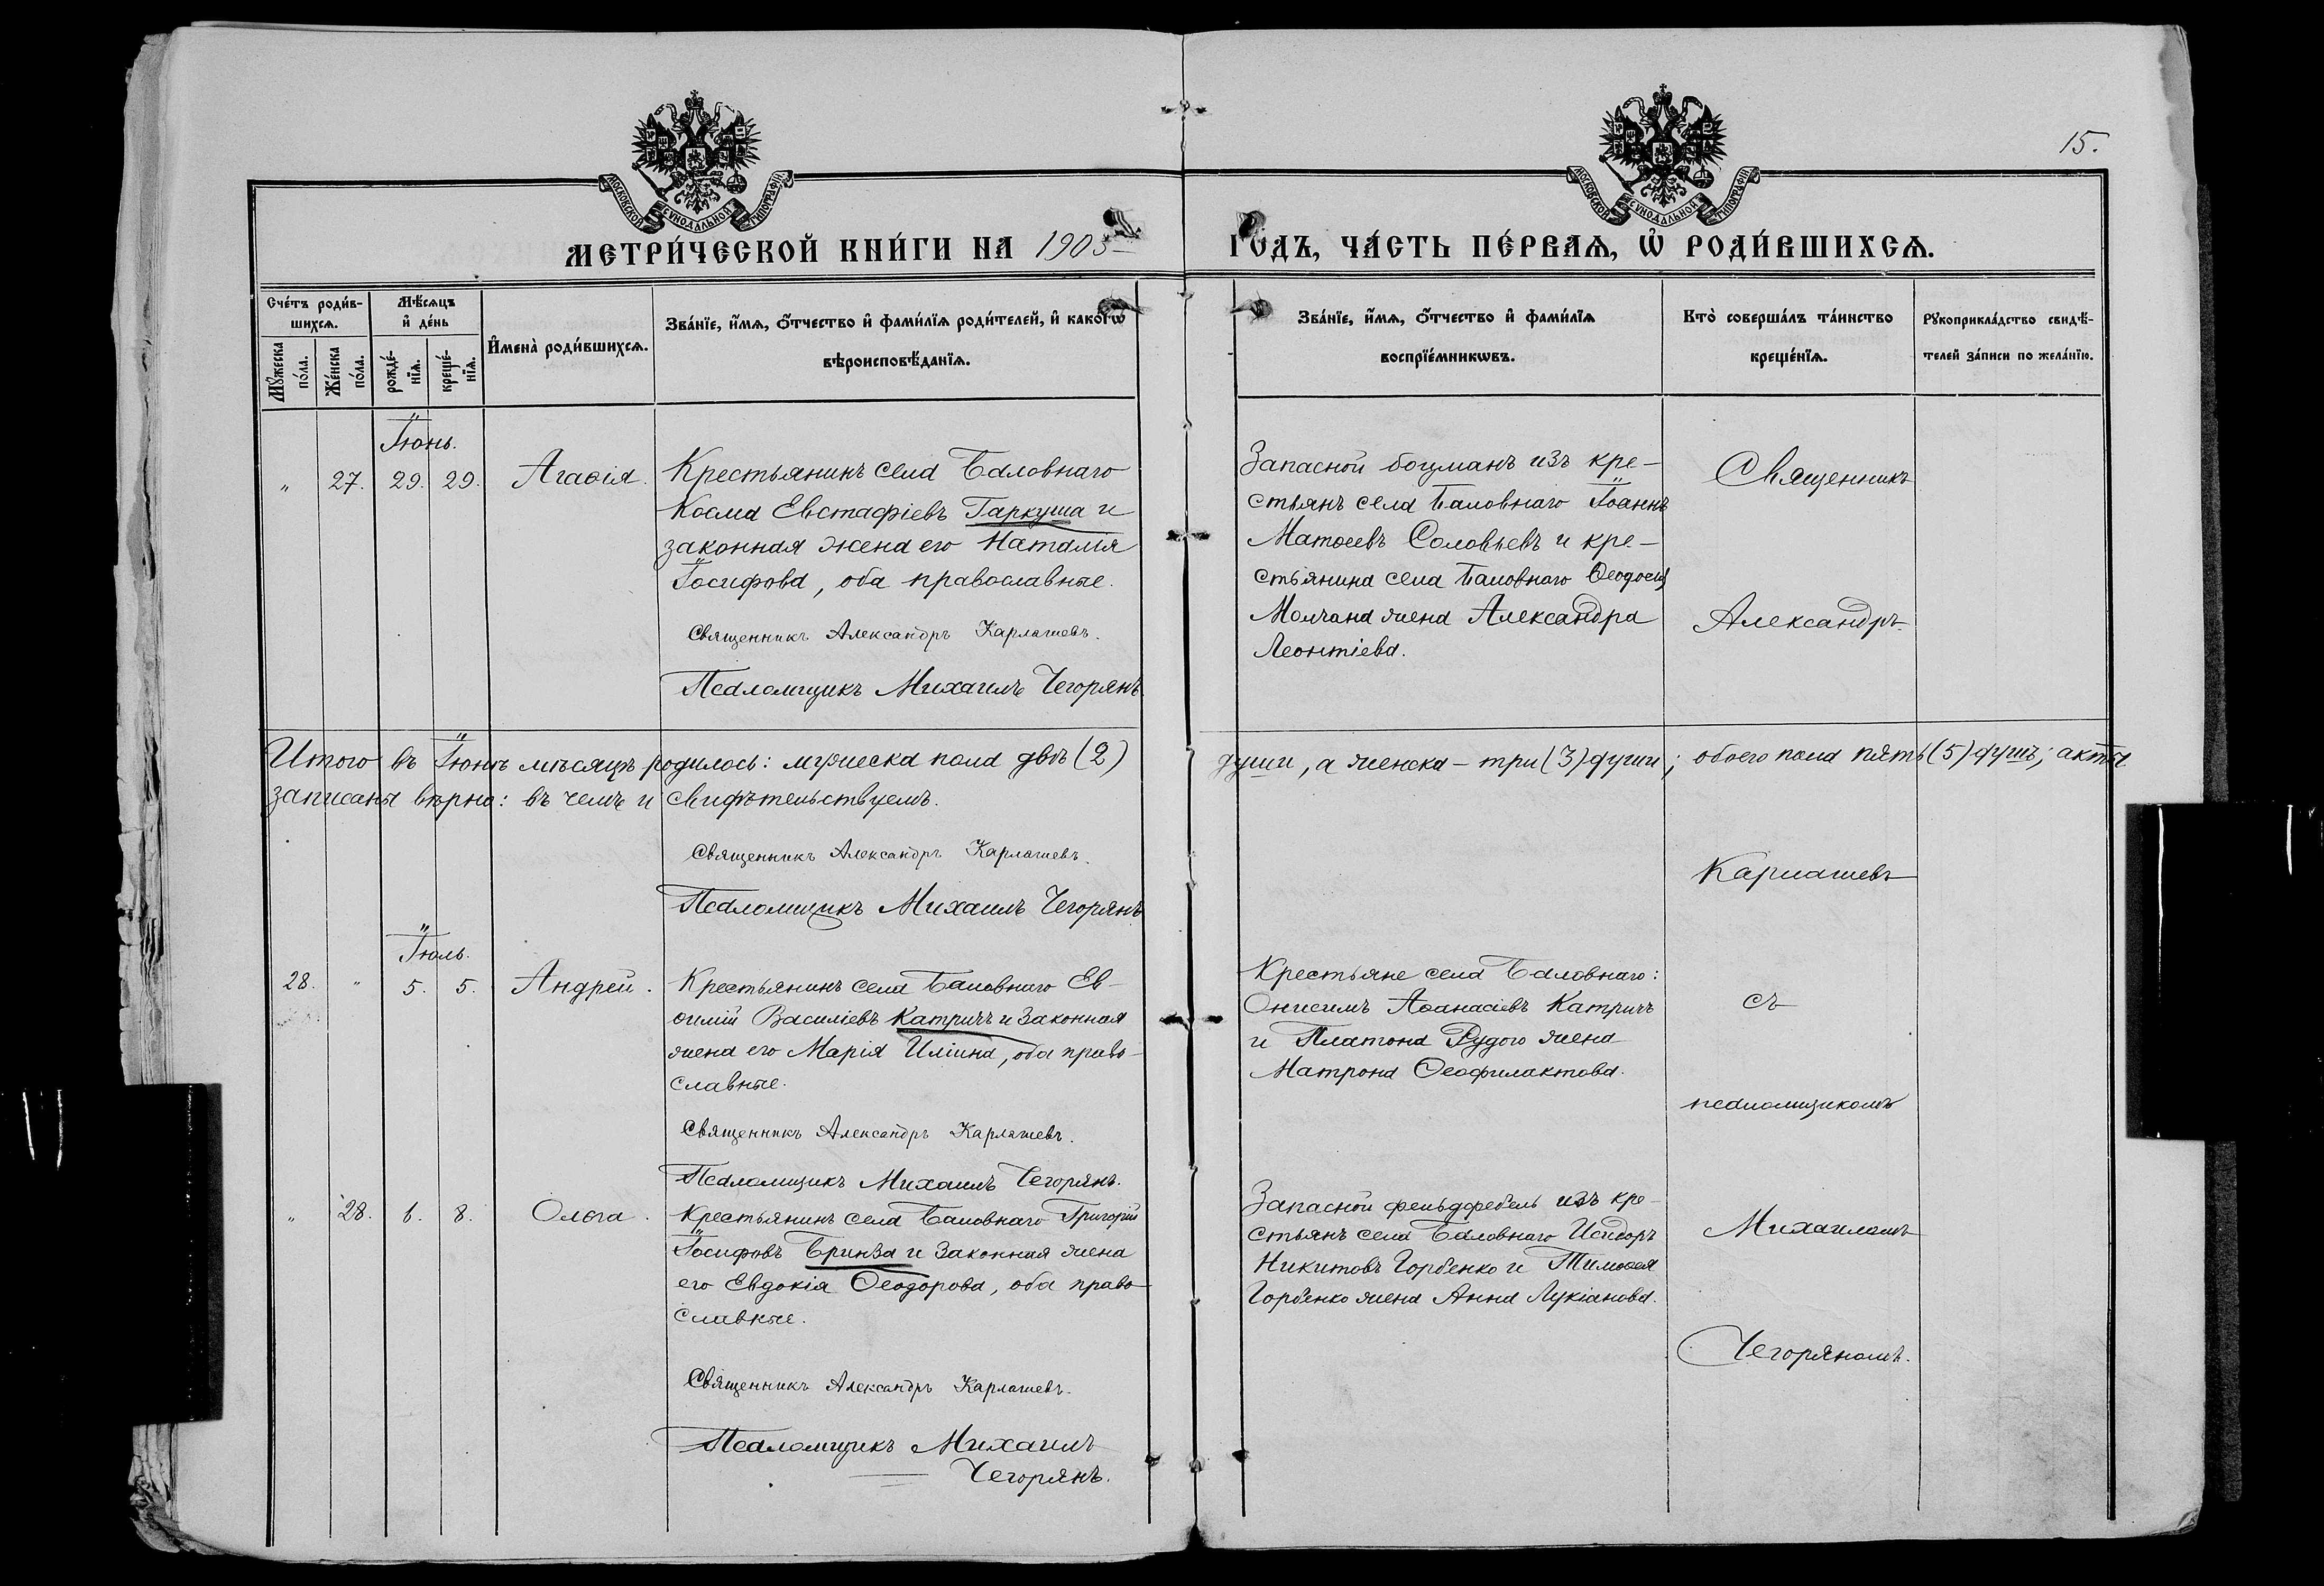 15.
МОСКОВСКОЙ СѴНОДАЛЬНОЙ ТИПОГРАФІИ
МОСКОВСКОЙ СѴНОДАЛЬНОЙ ТИПОГРАФІИ
МЕТРИ́ЧЕСКОЙ КНИ́ГИ НА 1903
ГОДЪ, ЧА́СТЬ ПЕ́РВАѦ, Ѡ҆ РОДИ́ВШИХСѦ.
Сче́тъ роди́в-
шихсѧ.
Мꙋ́жеска
по́ла.
Же́нска
по́ла.
Мѣ́сѧцъ
и҆ де́нь
рожде́-
нїѧ.
креще́-
нїѧ.
И҆мена̀ роди́вшихсѧ.
Зва́нїе, и҆́мѧ, ѻ҆́тчество и҆ фами́лїѧ роди́телей, и҆ како́гѡ
вѣроисповѣ́данїѧ.
Зва́нїе, и҆́мѧ, ѻ҆́тчество и҆ фами́лїѧ
воспрїе́мникѡвъ.
Кто̀ соверша́лъ та́инство
креще́нїѧ.
Рꙋкоприкла́дство свидѣ́-
телей за́писи по жела́нїю.
Іюнь.
" 27. 29. 29. Агаѳія.
Крестьянинъ села Баловнаго
Косма Евстафіевъ Гаркуша и
законная жена его Наталія
Іосифова, оба православные.
Священникъ Александръ Карлашевъ.
Псаломщикъ Михаилъ Чегорянъ.
Запасной боцманъ изъ кре-
стьянъ села Баловнаго Іоаннъ
Матѳеевъ Соловьевъ и кре-
стьянина села Баловнаго Ѳеодосія
Молчана жена Александра
Леонтіева.
Священникъ
Александръ
Итого въ Іюнѣ мѣсяцѣ родилось: мужеска пола двѣ (2)
души, а женска – три (3) души; обоего пола пять (5) душъ; акты
записаны вѣрно: въ чемъ и свидѣтельствуемъ.
Священникъ Александръ Карлашевъ.
Псаломщикъ Михаилъ Чегорянъ
Карлашевъ
Іюль.
28. " 5. 5. Андрей.
Крестьянинъ села Баловнаго Ев-
ѳимій Василіевъ Катричъ и законная
жена его Марія Иліина, оба право-
славные.
Священникъ Александръ Карлашевъ.
Псаломщикъ Михаилъ Чегорянъ.
Крестьяне села Баловнаго:
Онисимъ Аѳанасіевъ Катричъ
и Платона Рудого жена
Матрона Ѳеофилактова.
съ
псаломщикомъ
" 28. 6. 8. Ольга.
Крестьянинъ села Баловнаго Григорій
Іосифовъ Бринза и законная жена
его Евдокія Ѳеодорова, оба право-
славные.
Священникъ Александръ Карлашевъ.
Псаломщикъ Михаилъ
Чегорянъ.
Запасной фельдфебель изъ кре-
стьянъ села Баловнаго Исидоръ
Никитовъ Горбенко и Тимоѳея
Горбенко жена Анна Лукіанова.
Михаиломъ
Чегоряномъ.